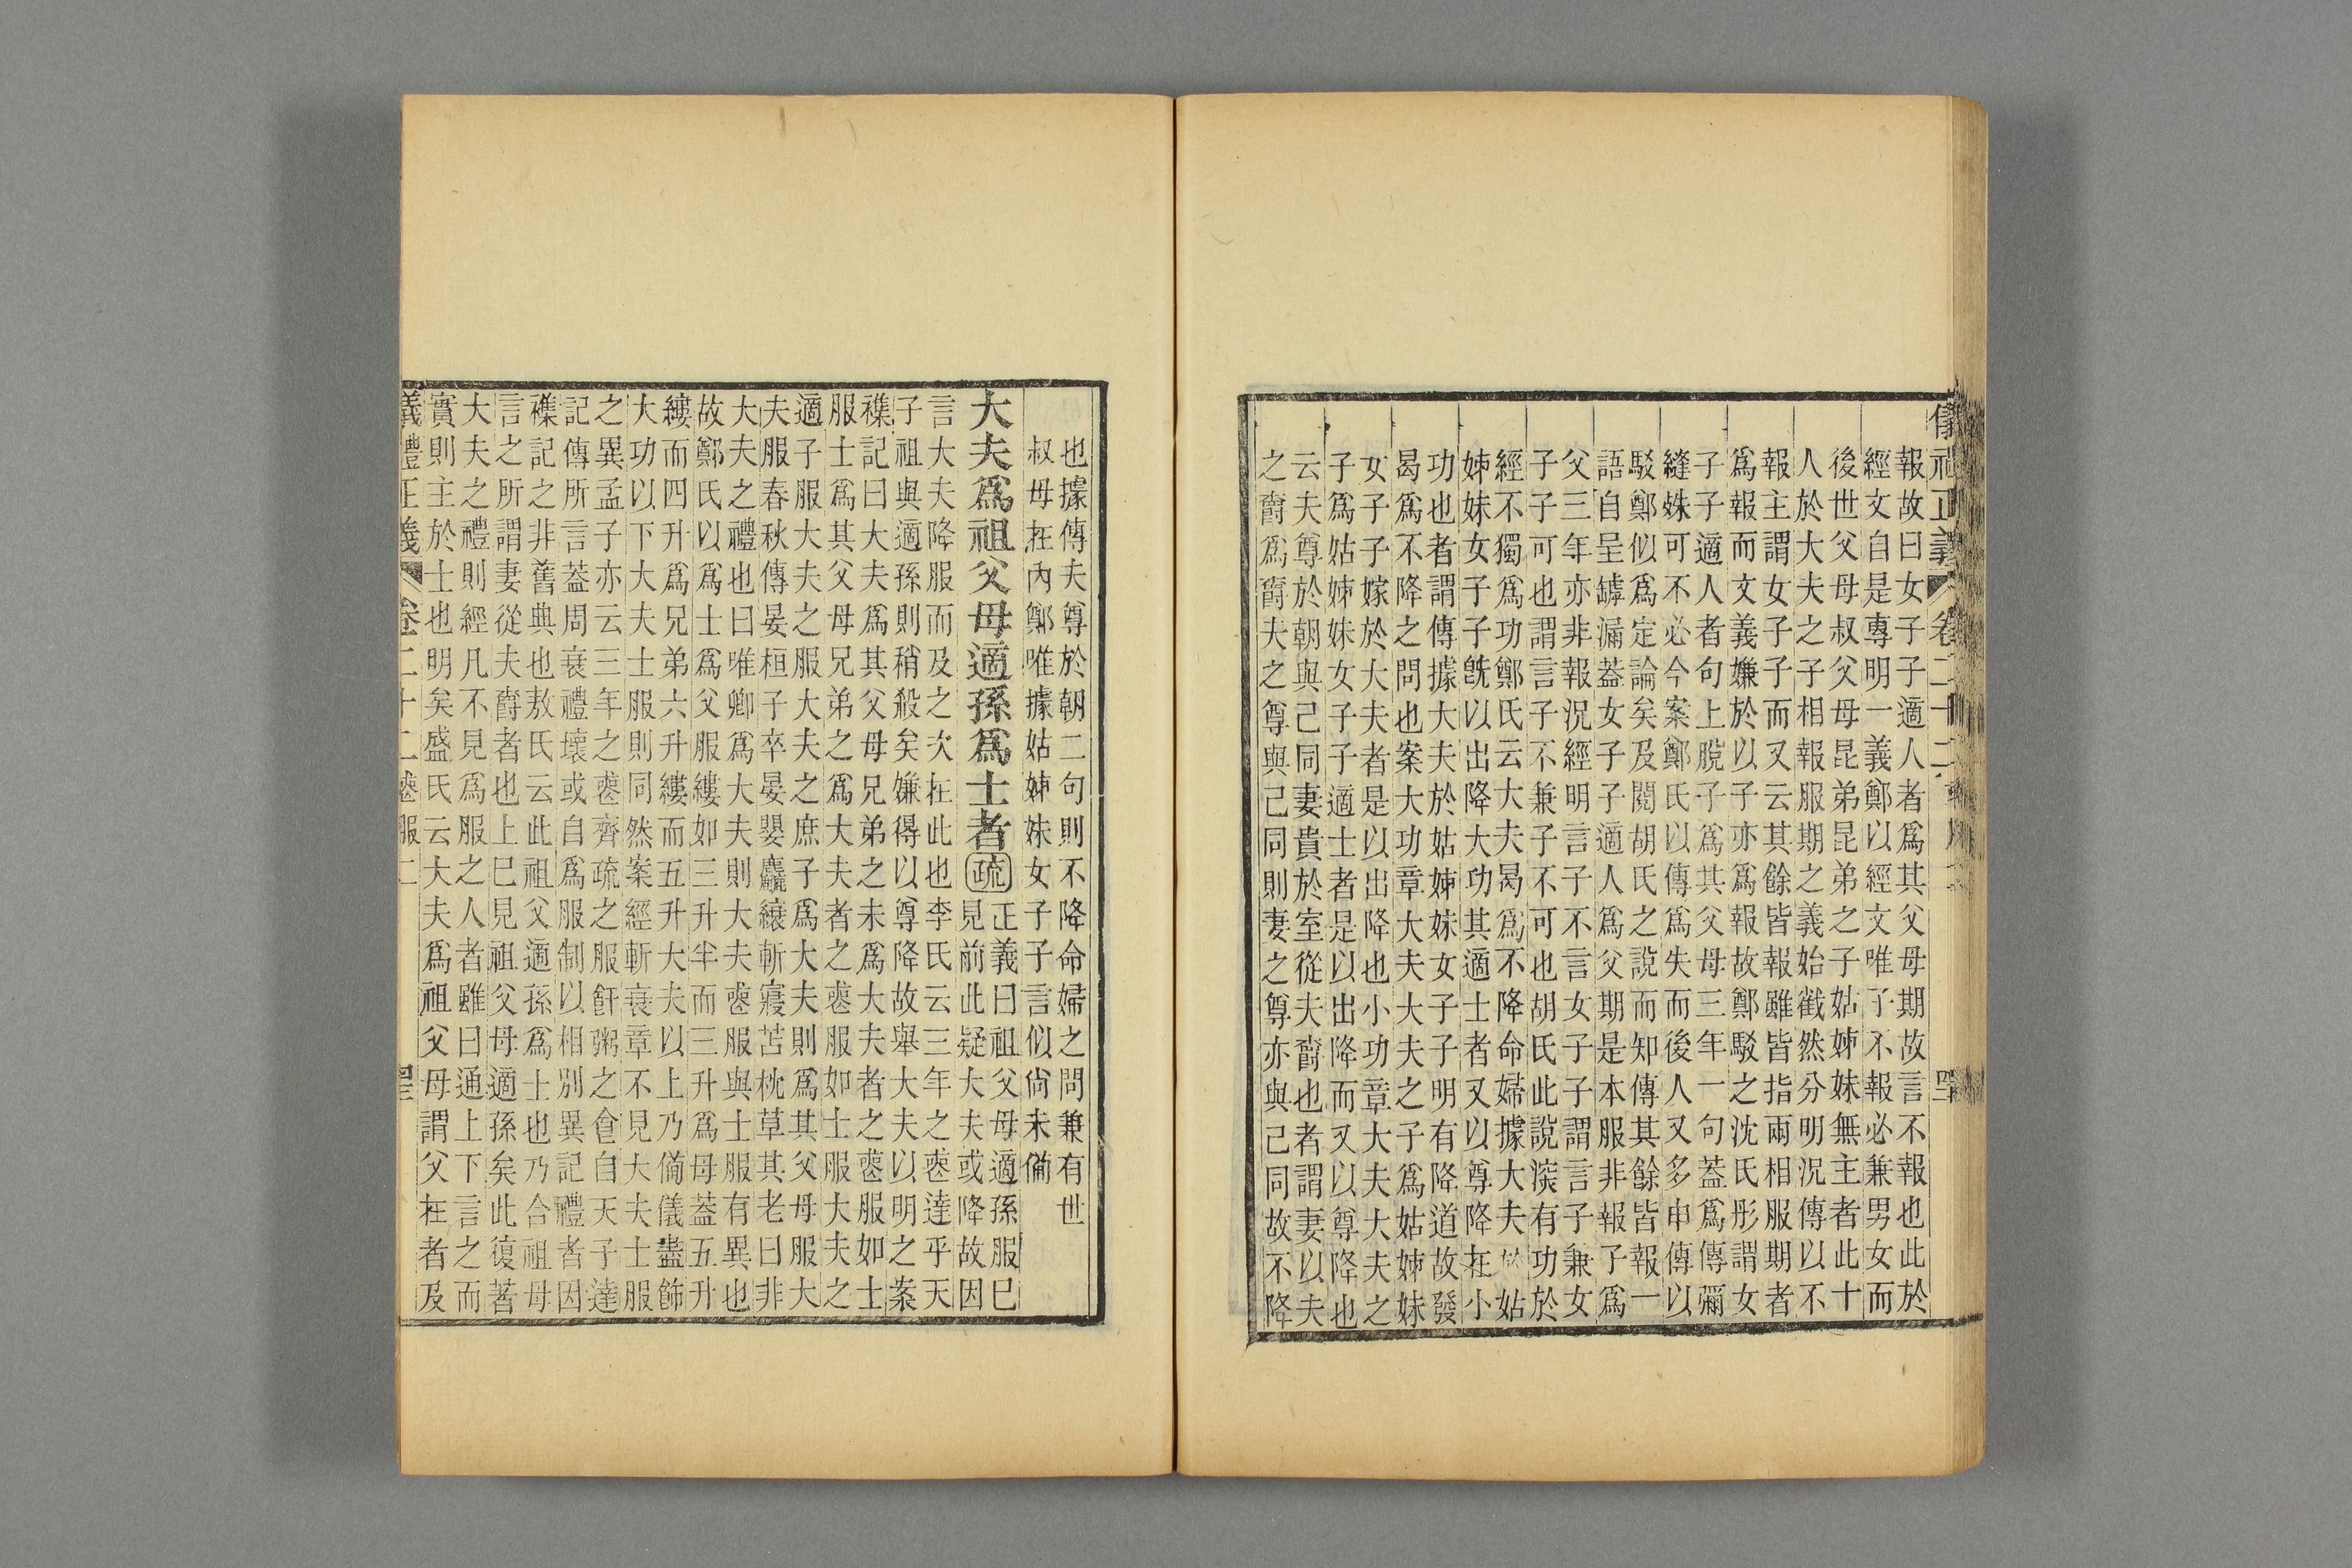 報故曰女子子適人者爲其父母期故言不報也此於
經文自是專明一義鄭以經文唯子不報必兼男女而
後世父母叔父母昆弟昆弟之子姑姊妹無主者此十
人於大夫之子相報服期之義始截然分明況傳以不
報主謂女子子而又云其餘皆報雖皆指兩相服期者
爲報而文義嫌於以子亦爲報故鄭駁之沈氏彤謂女
子子適人者句上脫子爲其父母三年一句蓋爲傳彌
縫姝可不必今案鄭氏以傳爲失而後人又多申傳以
駁鄭似爲定論矣及閱胡氏之說而知傳其餘皆報一
語自呈罅漏蓋女子子適人爲父期是本服非報子爲
父三年亦非報況經明言子不言女子子謂言子兼女
子子可也謂言子不兼子不可也胡氏此說㴱有功於
經不獨爲功鄭氏云大夫曷爲不降命婦據大夫於姑
姊妹女子子旣以出降大功其適士者又以尊降在小
功也者謂傳據大夫於姑姊妹女子子明有降道故發
曷爲不降之問也案大功章大夫大夫之子爲姑姊妹
女子子嫁於大夫者是以出降也小功章大夫大夫之
子爲姑姊妹女子子適士者是以出降而又以尊降也
云夫尊於朝與己同妻貴於室從夫爵也者謂妻以夫
之爵爲爵夫之尊與己同則妻之尊亦與己同故不降
也據傳夫尊於朝二句則不降命婦之問兼有世
叔母在內鄭唯據姑姊妹女子子言似尙未僃
大夫爲祖父母適孫爲士者疏正義曰祖父母適孫服已
見前此疑大夫或降故因
言大夫降服而及之次在此也李氏云三年之喪達乎天
子祖與適孫則稍殺矣嫌得以尊降故舉大夫以明之案
襍記曰大夫爲其父母兄弟之未爲大夫者之喪服如士
服士爲其父母兄弟之爲大夫者之喪服如士服大夫之
適子服大夫之服大夫之庶子爲大夫則爲其父母服大
夫服春秋傳晏桓子卒晏嬰麤縗斬寢苫枕草其老曰非
大夫之禮也曰唯卿爲大夫則大夫喪服與士服有異也
故鄭氏以爲士爲父服縷如三升半而三升爲母蓋五升
縷而四升爲兄弟六升縷而五升大夫以上乃僃儀盡飾
大功以下大夫士服則同然案經斬衰章不見大夫士服
之異孟子亦云三年之喪齊疏之服飦粥之食自天子達
記傳所言蓋周衰禮壞或自爲服制以相別異記禮者因
襍記之非舊典也敖氏云此祖父適孫爲士也乃合祖母
言之所謂妻從夫爵者也上已見祖父母適孫矣此復著
大夫之禮則經凡不見爲服之人者雖曰通上下言之而
實則主於士也明矣盛氏云大夫爲祖父母謂父在者及
儀禮正義 卷二十二喪服二